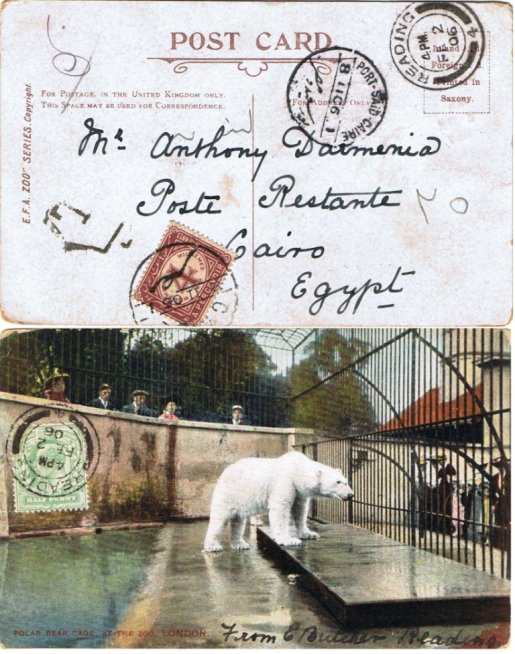 POST CARD
FOR POSTAGE, IN THE UNITED KINGDOM ONLY,
THIS SPACE MAY BE USED FOR CORRESPONDENCE.
For Address Only.
Inland and
Foreign
Printed in
Saxony.
E.F.A. "ZOO" SERIES. Copyright.
READING
4 PM
2
06
PORT-SAID CAIRE
Mr Anthony Darmenia
Poste Restante
Cairo
Egypt
T
READING
4 PM
06
HALF PENNY
POLAR BEAR CAGE, AT THE ZOO, LONDON.
From C Butcher Reading